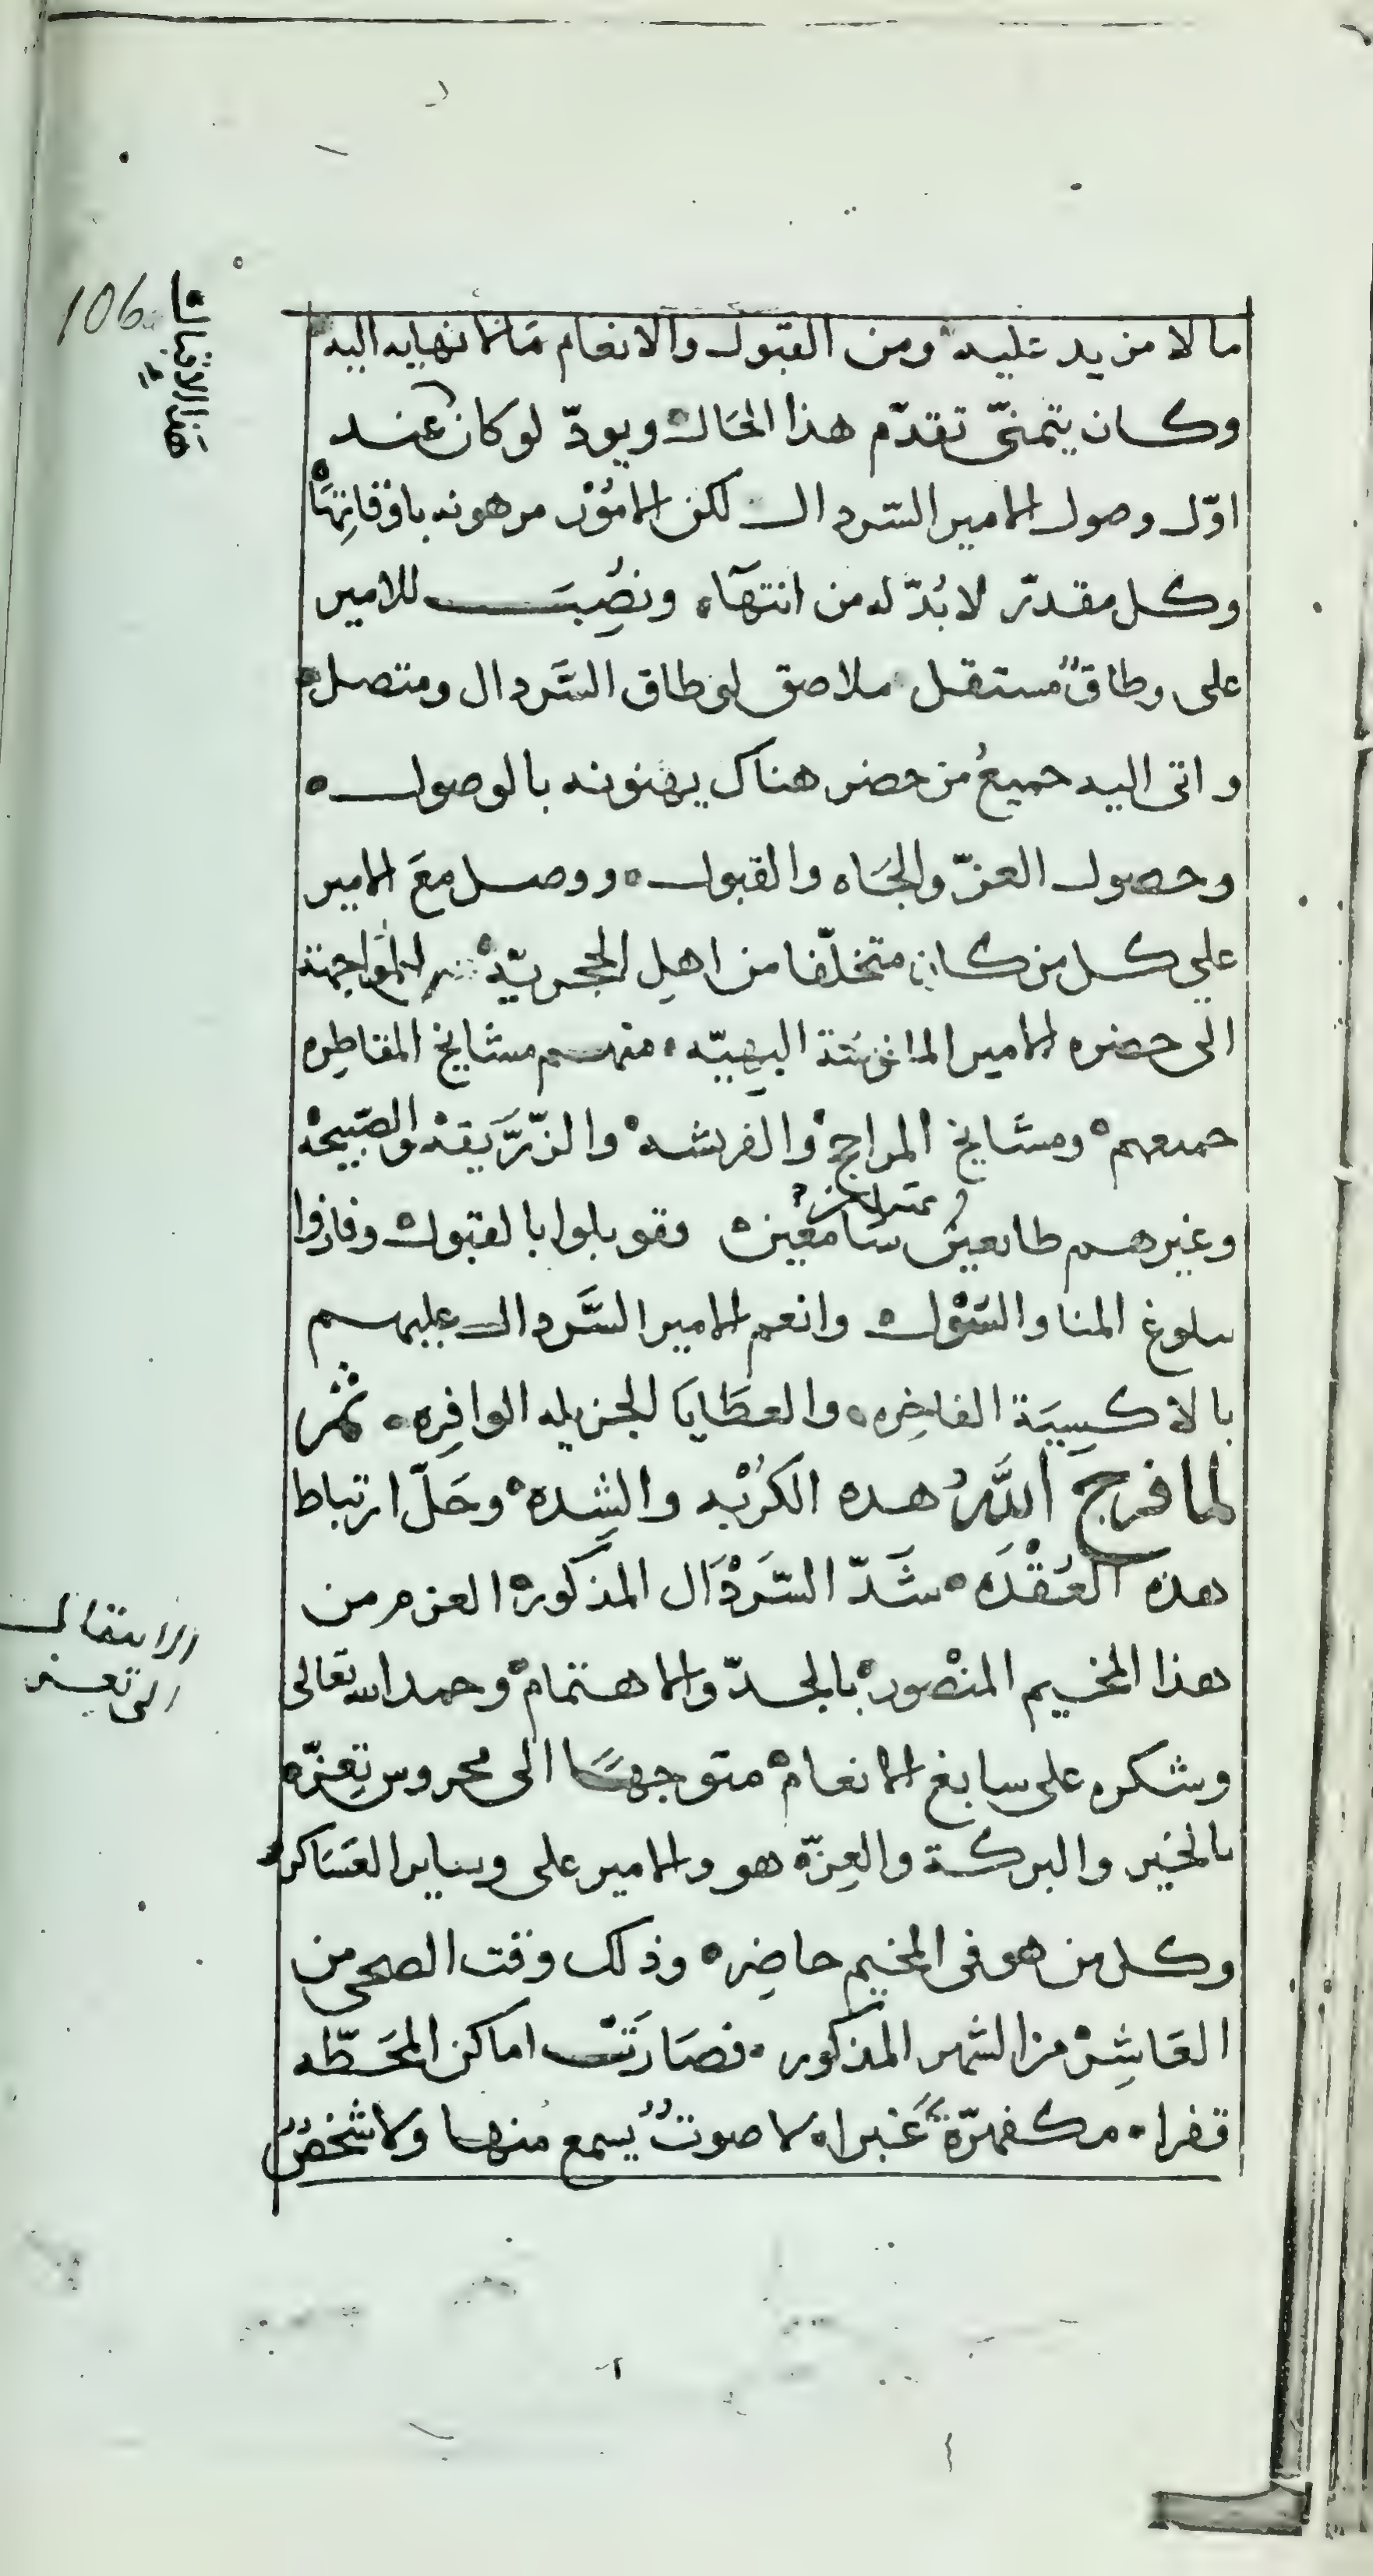 106
ما لا مزيد عليه ومن القبول والانعام مالا نهايه اليه
وكان يتمنّى تقدّم هذا الحال ويودّ لو كان عند
اوّل وصول الامير السّردال لكن الامُوْر مرهونه باوْقاتِهَا
وكل مقدّر لا بُدّ له من انتهآء ونُصِبَ للامير
على وطاقٌ مستقل ملاصق لوطاق السَّردال ومتصل
واتى اليه جميعُ من حضر هناك يهنونه بالوصول
وحصول العزّ والجَاه والقبول ووصل معَ الامير
علي كل من كان متخلّفا من اهلِ الحجريّة للمواجهة
الى حضره الامير البهيّه منهم مشايخ المقاطِره
جميعهم ومشايخ المراجح والفرشه والزّرَيقة والصّبيحة
وغيرهم طايعين سامعين فقوبلوا بالقبول وفازوا
ببلوغ المنا والسّؤل وانعم الامير السَّردال عليهم
بالاكسِيَة الفاخِره والعطَايَا الجزيله الوافِره ثمّ
لما فرج اللَّهُ هده الكُرْبه والشِده وحَلّ ارتباط
هذه العُقْدَه شَدّ السّرَدْال المذكور العزم من
هذا المخيم المنْصور بالجدّ والاهتمام وحمد الله تعالى
وشكره على سابغ الانعام متوجهًا الى محروس تِعِزّه
بالخير والبركة والعِزّه هو والامير على وساير العسَاكر
وكل من هو فى المخيم حاضِره وذلك وقت الضحى من
العَاشِرْ من الشهر المذكور فصَارَتْ اماكن المحَطّه
قفراء مكفهرّةً غبراء لا صوتٌ يُسمع منها ولا شخصٌ
الانتقال
الى تعز